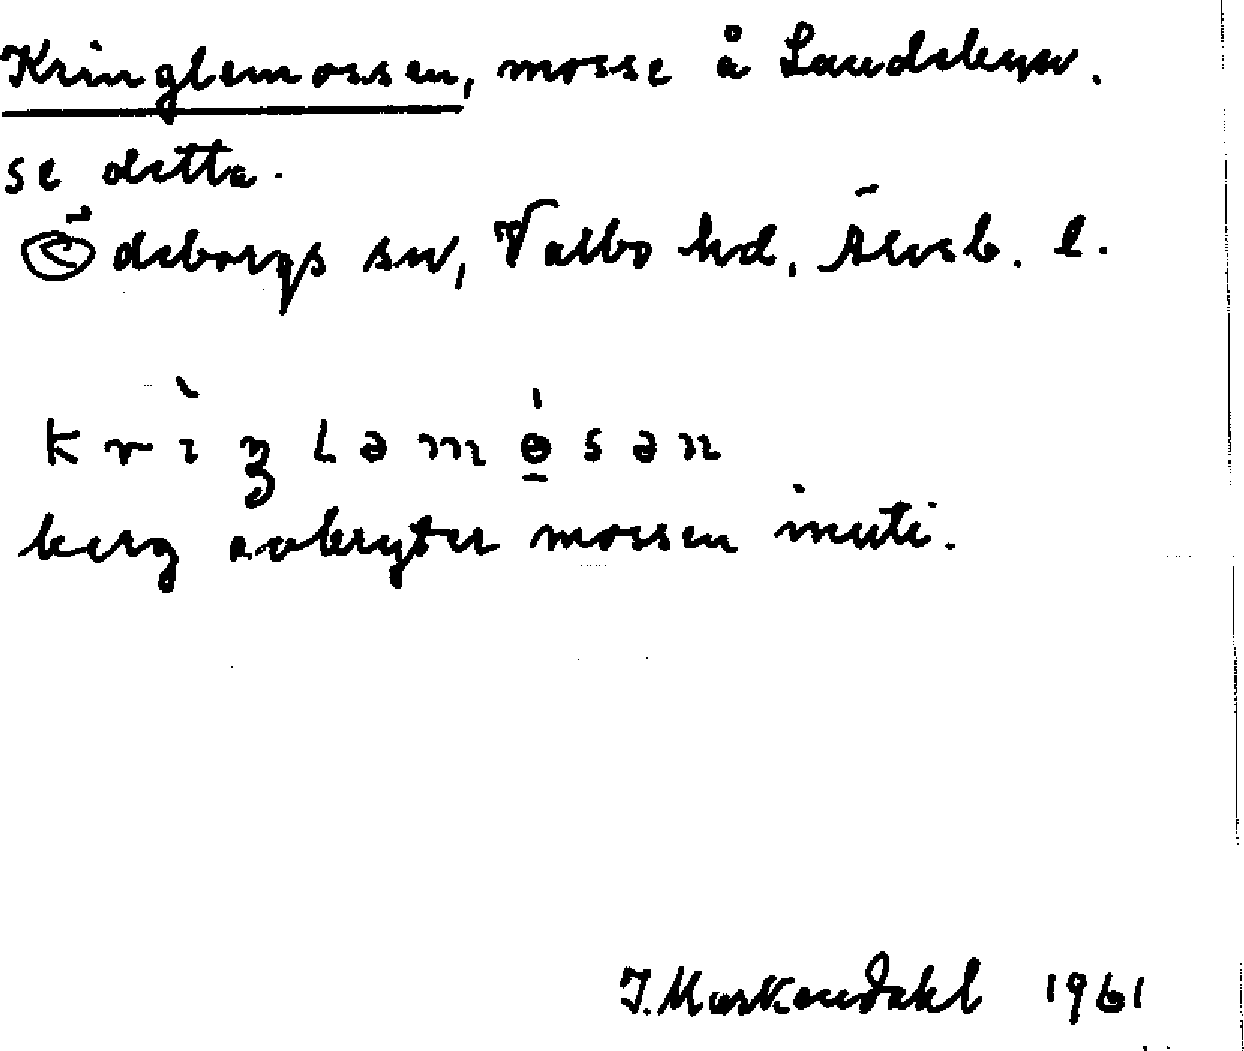 Kringlemossen, mosse å Landsbyn.
se detta.
Ödsborgs sn, Valbo hd, Älvsb. l.
krìŋləmɵ̠́sən
berg avbryter mossen inuti.
J. Moskendahl 1961